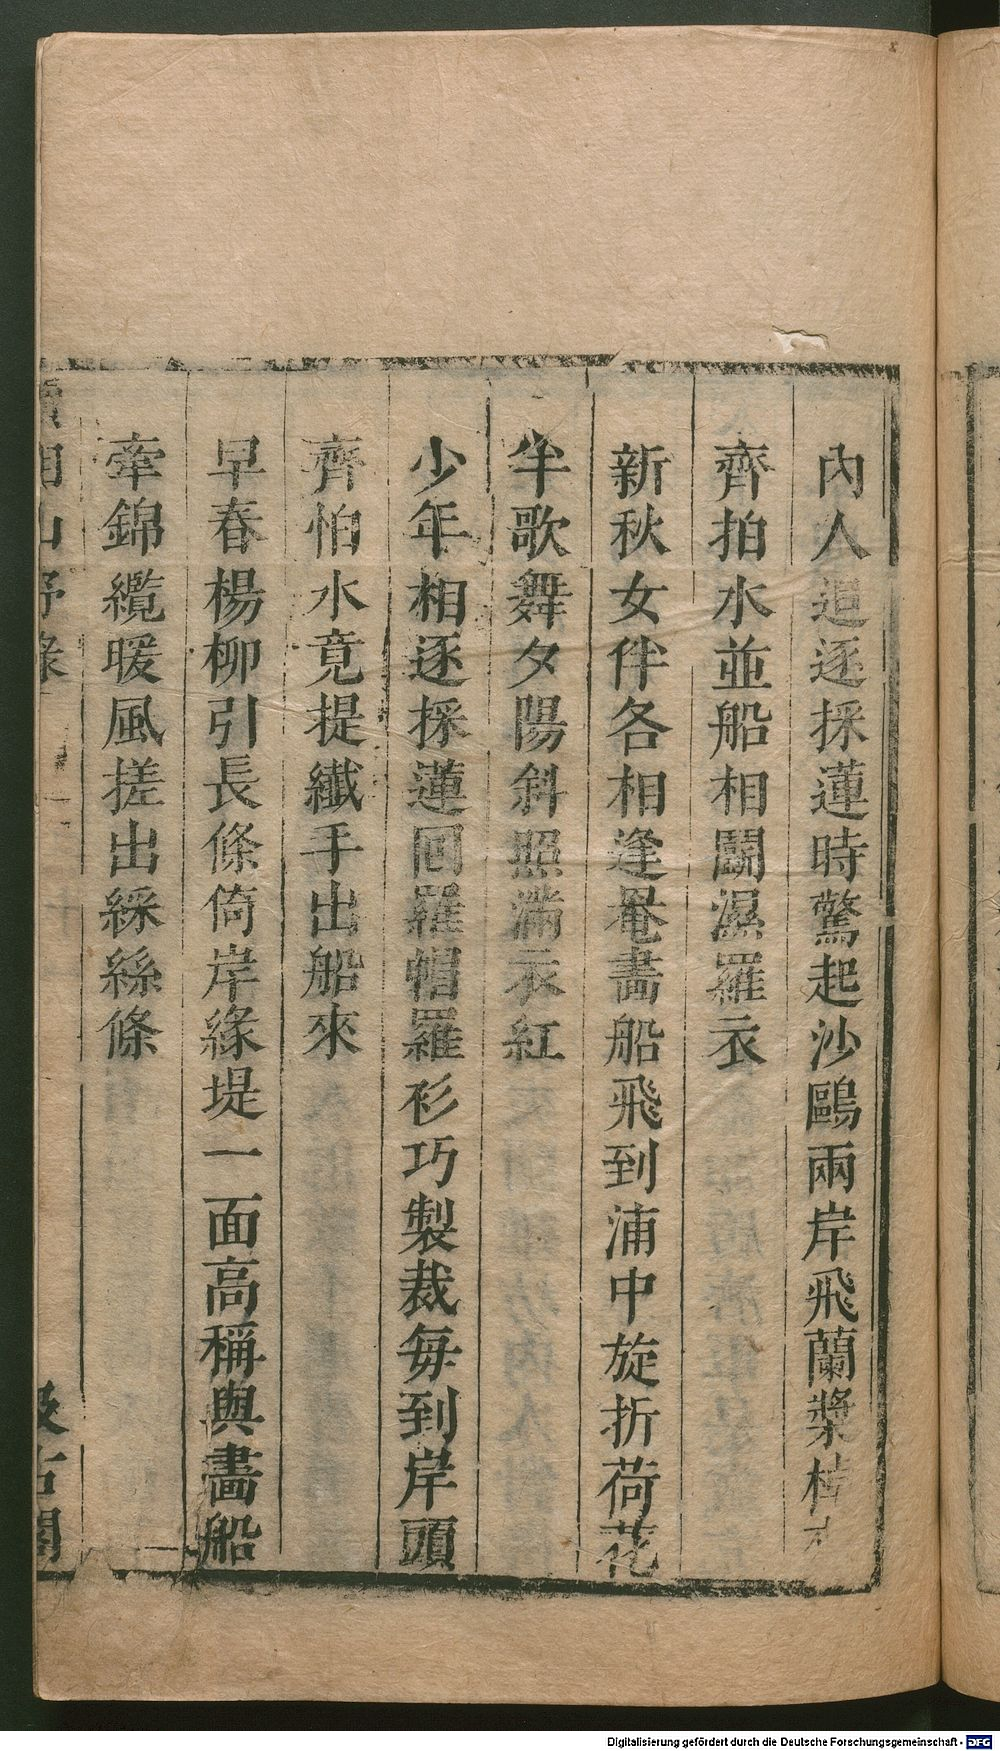 內人追逐採蓮時驚起沙鷗兩岸飛蘭槳
齊拍水並船相鬭濕羅衣
新秋女伴各相逢罨畫船飛到浦中旋折荷花
半歌舞夕陽斜照滿衣紅
少年相逐採蓮回羅帽羅衫巧製裁每到岸頭
齊怕水竟提纖手出船來
早春楊柳引長條倚岸緣堤一面高稱與畫船
牽錦纜暖風搓出綵絲條
續湘山野錄
汲古閣
Digitalisierung gefördert durch die Deutsche Forschungsgemeinschaft - DFG